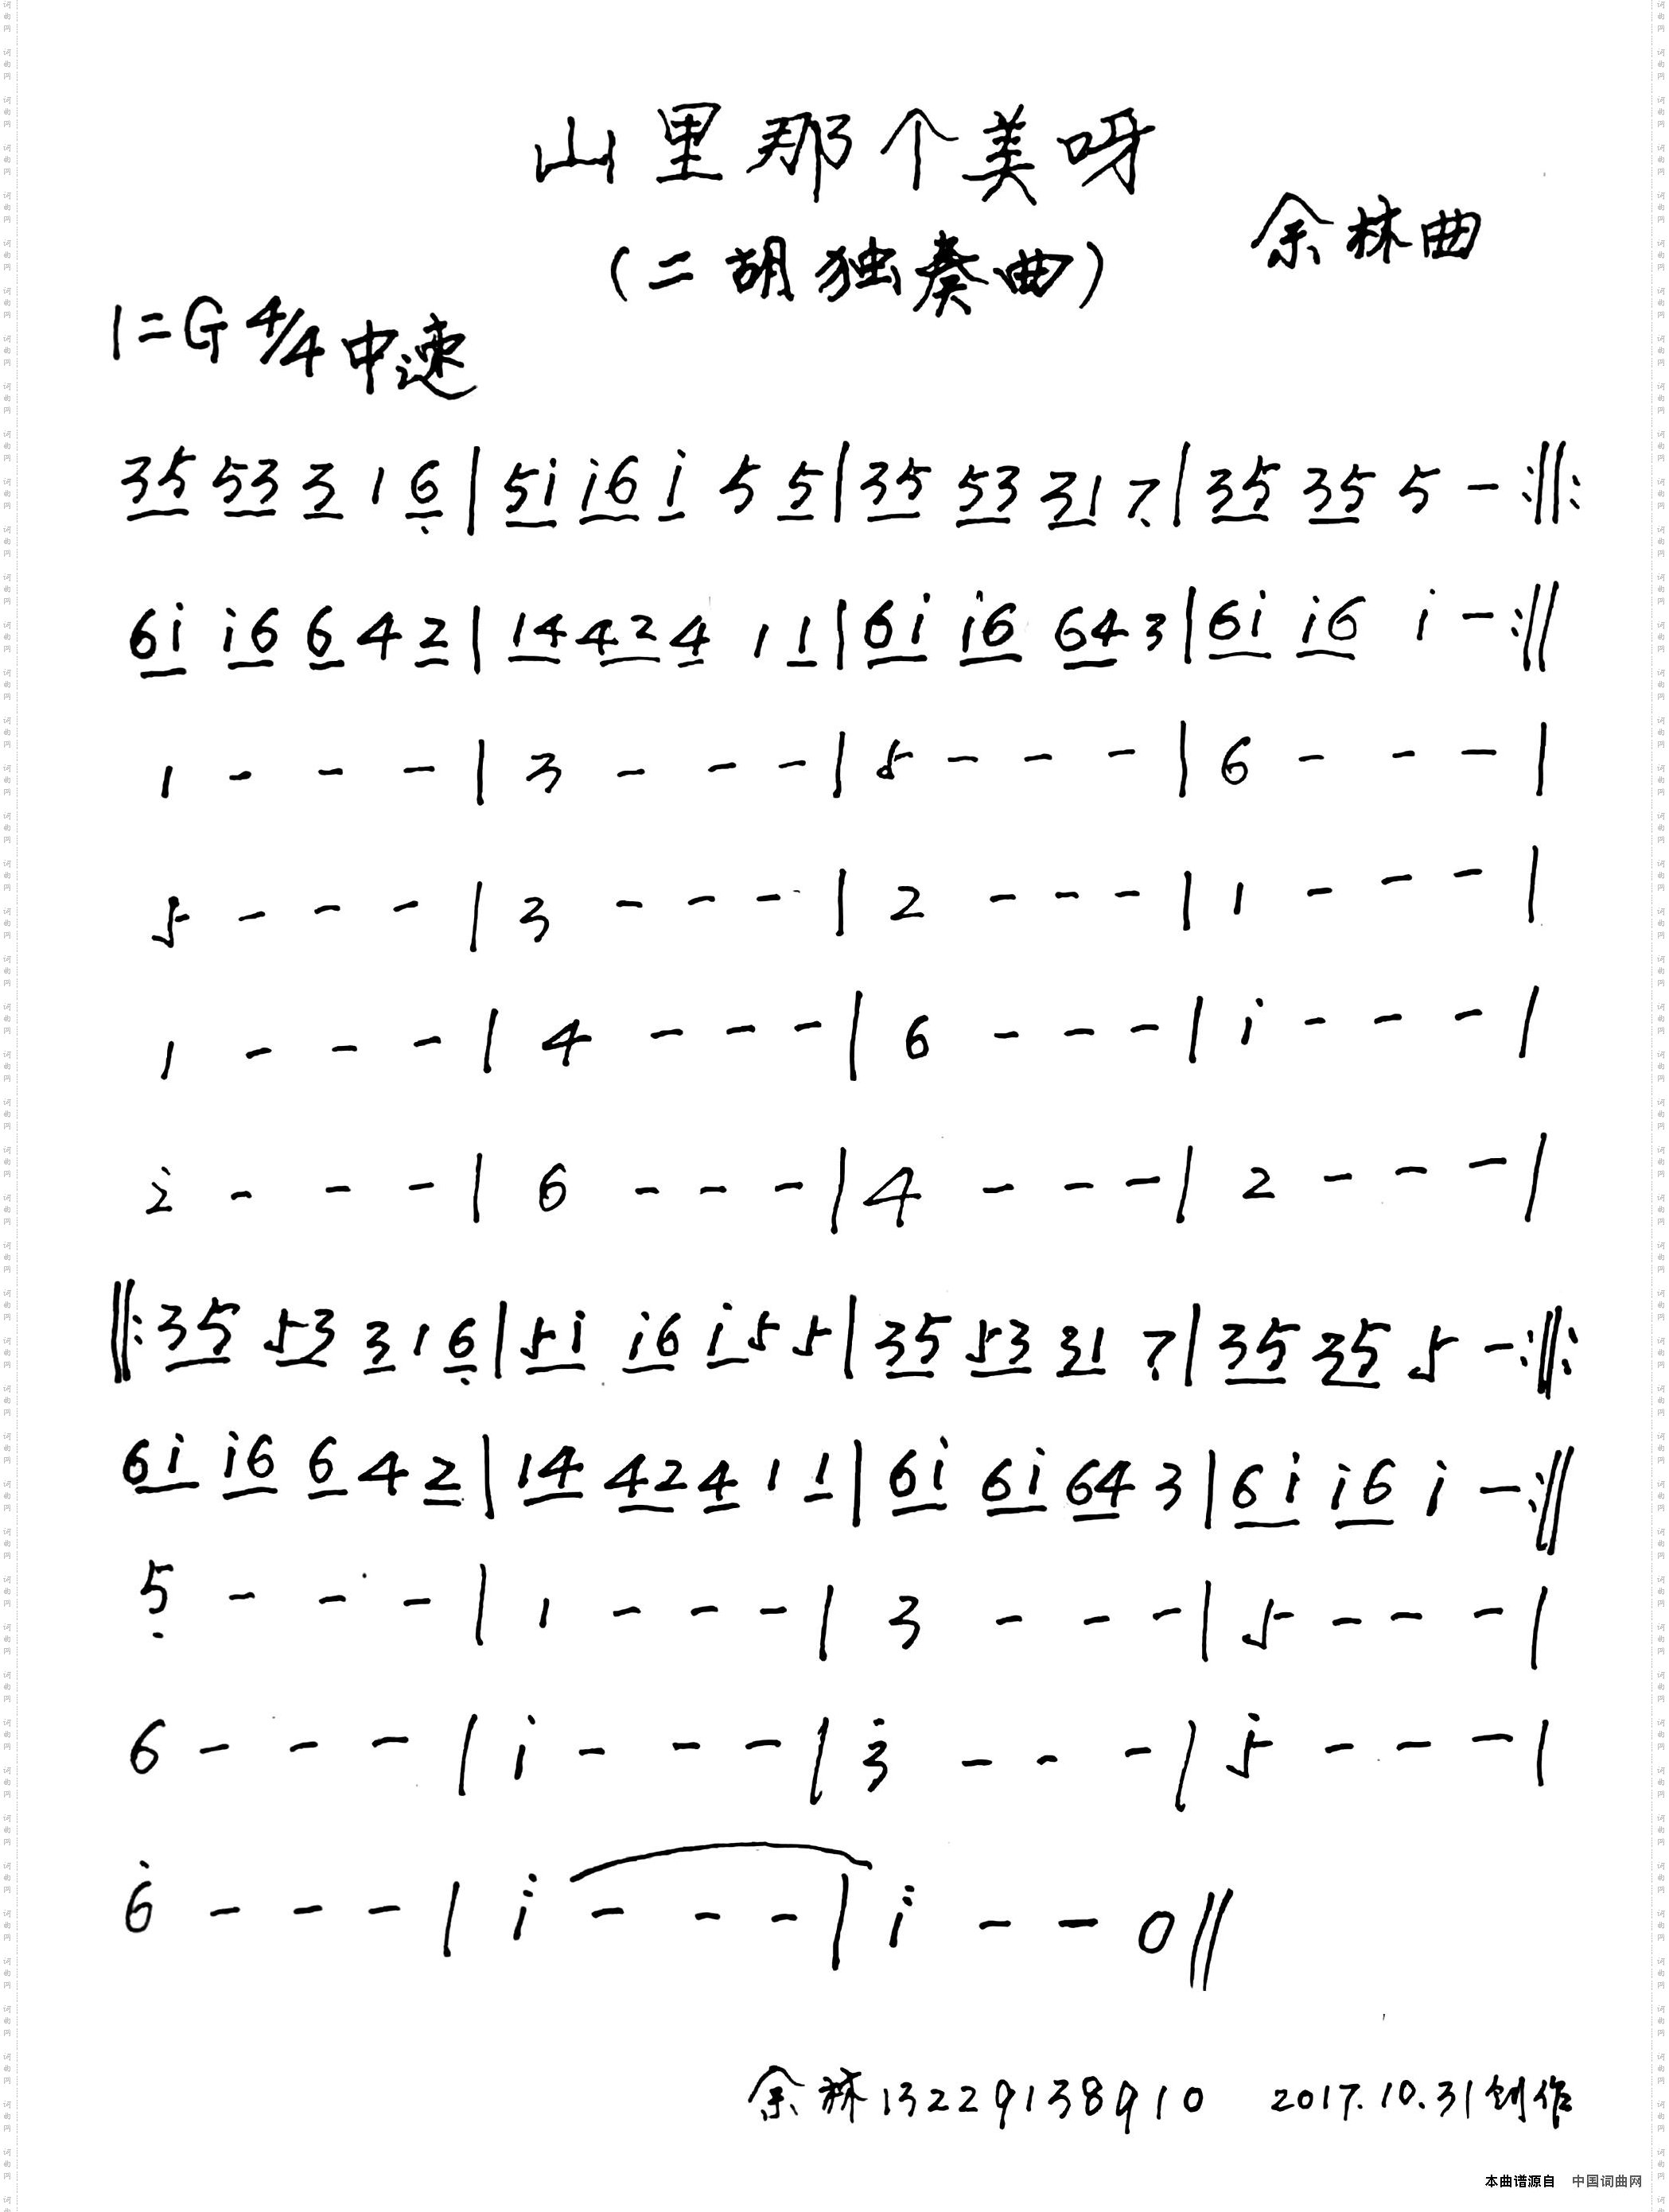 山里那个美呀
(二胡独奏曲)
余林曲
1=G 4/4 中速
35 53 3 1 6̣ | 5i i6 i 5 5 | 35 53 31 7̣ | 35 35 5 - :‖:
6i i6 6 4 2 | 14 42 4 1 1 | 6i i6 64 3 | 6i i6 i - :‖
1 - - - | 3 - - - | 5 - - - | 6 - - - |
5 - - - | 3 - - - | 2 - - - | 1 - - - |
1 - - - | 4 - - - | 6 - - - | i - - - |
2̇ - - - | 6 - - - | 4 - - - | 2 - - - |
‖: 35 53 3 1 6̣ | 5i i6 i5 5 | 35 53 31 7̣ | 35 35 5 - :‖:
6i i6 6 4 2 | 14 42 4 1 1 | 6i 6i 64 3 | 6i i6 i - :‖
5̣ - - - | 1 - - - | 3 - - - | 5 - - - |
6 - - - | i - - - | 3̇ - - - | 5̇ - - - |
6̇ - - - | i̇ - - - | i̇ - - 0 ‖
余林13229138910 2017.10.31创作
本曲谱源自 中国词曲网